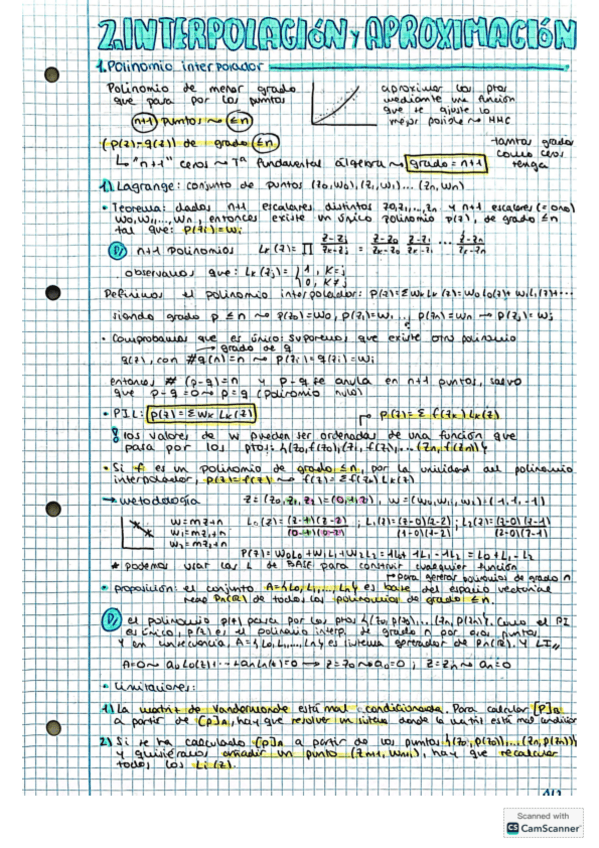 2. INTERPOLACIÓN Y APROXIMACIÓN
1. Polinomio interpolador
Polinomio de menor grado
que pasa por los puntos
n+1 puntos ~> ≤n
aproximar los ptos
mediante una función
que se ajuste lo
mejor posible ~> MMC
(p(z)-q(z)) de grado ≤n
↳ "n+1" ceros ~> Tª fundamental álgebra ~> grado = n+1
tantos grados
como ceros
tenga
1) Lagrange: conjunto de puntos (z0,w0),(z1,w1)...(zn,wn)
• Teorema: dados n+1 escalares distintos z0,z1,...,zn y n+1 escalares (= o no)
w0,w1,...,wn, entonces existe un único polinomio p(z), de grado ≤n
tal que: p(zi)=wi
D/ n+1 polinomios Lk(z)= ∏ z-zj / zk-zj = z-z0 / zk-z0 z-z1 / zk-z1 ... z-zn / zk-zn
observamos que: Lk(zj)= { 1, k=j
0, k≠j
Definimos el polinomio interpolador: p(z)=Σwk Lk(z)=w0L0(z)+w1L1(z)+...
siendo grado p ≤n ~> p(z0)=w0, p(z1)=w1, ..., p(zn)=wn → p(zj)=wj
• Comprobamos que es único: suponemos que existe otro polinomio
→ grado de q
q(z), con #q(n)=n ~> p(zi)=q(zi)=wi
entonces # (p-q)=n y p-q se anula en n+1 puntos, salvo
que p-q=0 → p=q (polinomio nulo)
• PIL: p(z)=Σwk Lk(z) → p(z)=Σ f(zk) Lk(z)
los valores de w pueden ser ordenadas de una función que
pasa por los ptos: {(z0,f(z0),(z1,f(z1),...(zn,f(zn)}
• Si f es un polinomio de grado ≤n, por la unicidad del polinomio
interpolador, p(z)=f(z) ~> f(z)=Σf(zk) Lk(z)
→ metodología z=(z0,z1,z2)=(0,1,2), w=(w0,w1,w2)=(1,1,-1)
w=mz+n
w1=mz1+n
w2=mz2+n
L0(z)= (z-1)(z-2) / (0-1)(0-2); L1(z)= (z-0)(z-2) / (1-0)(1-2); L2(z)= (z-0)(z-1) / (2-0)(2-1)
P(z)=w0L0+w1L1+w2L2=1L0+1L1-1L2=L0+L1-L2
* podemos usar las L de BASE para construir cualquier función
→ para generar polinomios de grado n
• proposición: el conjunto A={L0,L1,...,Ln} es base del espacio vectorial
Pn(R) de todos los polinomios de grado ≤n.
D/ el polinomio p(z) pasa por los ptos {(z0,p(z0)...(zn,p(zn)}. Como el PI
es único, p(z) es el polinomio interp. de grado n por puntos
y en consecuencia, A={L0,L1,...,Ln} es sistema generador de Pn(R). Y LI
A=0 ~> a0L0(z)+...+anLn(z)=0 → z=z0 ~> a0=0; z=zn ~> an=0
• Limitaciones:
1) La matriz de Vandermonde está mal condicionada. Para calcular [P]B
a partir de [p]A, hay que resolver un sistema donde la matriz está mal condicion
2) Si se ha calculado [p]A a partir de los puntos {(z0,p(z0))...(zn,p(zn))}
y quisiéramos añadir un punto (zn+1,wn+1), hay que recalcular
todos los Li(z).
Scanned with
CS CamScanner